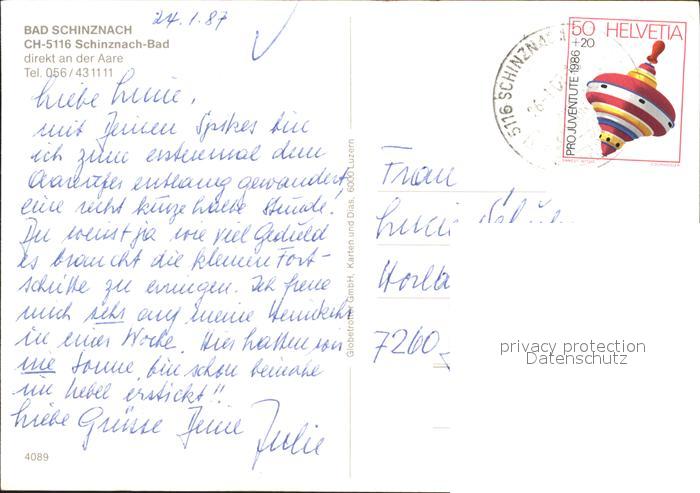 24.1.87
BAD SCHINZNACH
CH-5116 Schinznach-Bad
direkt an der Aare
Tel. 056/431111
Liebe Lucie,
mit Deinen Spikes bin
ich zum erstenmal dem
Aareufer entlang gewandert,
eine recht kurze halbe Stunde!
Du weisst ja wie viel Geduld
es braucht die kleinen Fort-
schritte zu erringen. Ich freue
mich sehr auf meine Heimkehr
in einer Woche. Hier hatten wir
nie Sonne, bin schon beinahe
im Nebel erstickt!!
Liebe Grüsse Deine Julie
4089
Globetrotter GmbH, Karten und Dias, 6000 Luzern
50 HELVETIA
+20
PRO JUVENTUTE 1986
5116 SCHINZNACH
Frau
Lucie
7260
privacy protection
Datenschutz